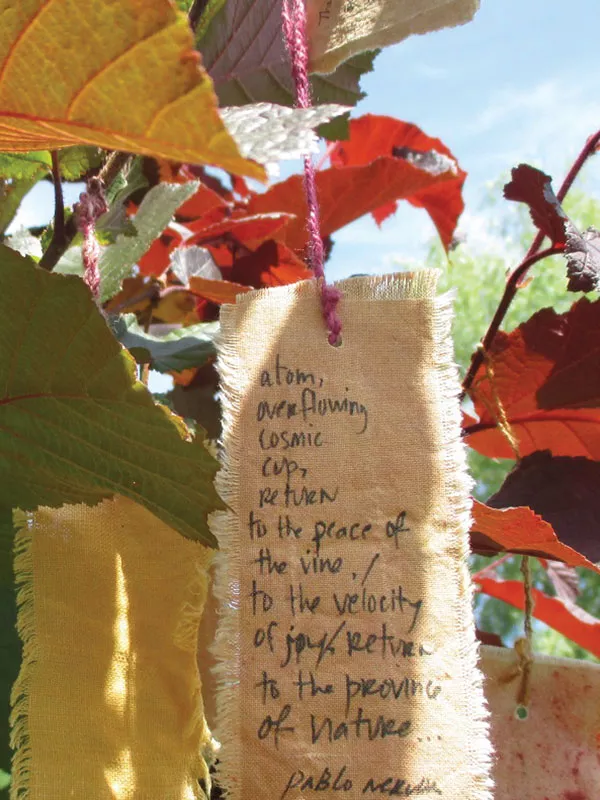 Tha
atom,
overflowing
cosmic
cup,
return
to the peace of
the vine./
to the velocity
of joy/return
to the province
of nature...
pablo neruda